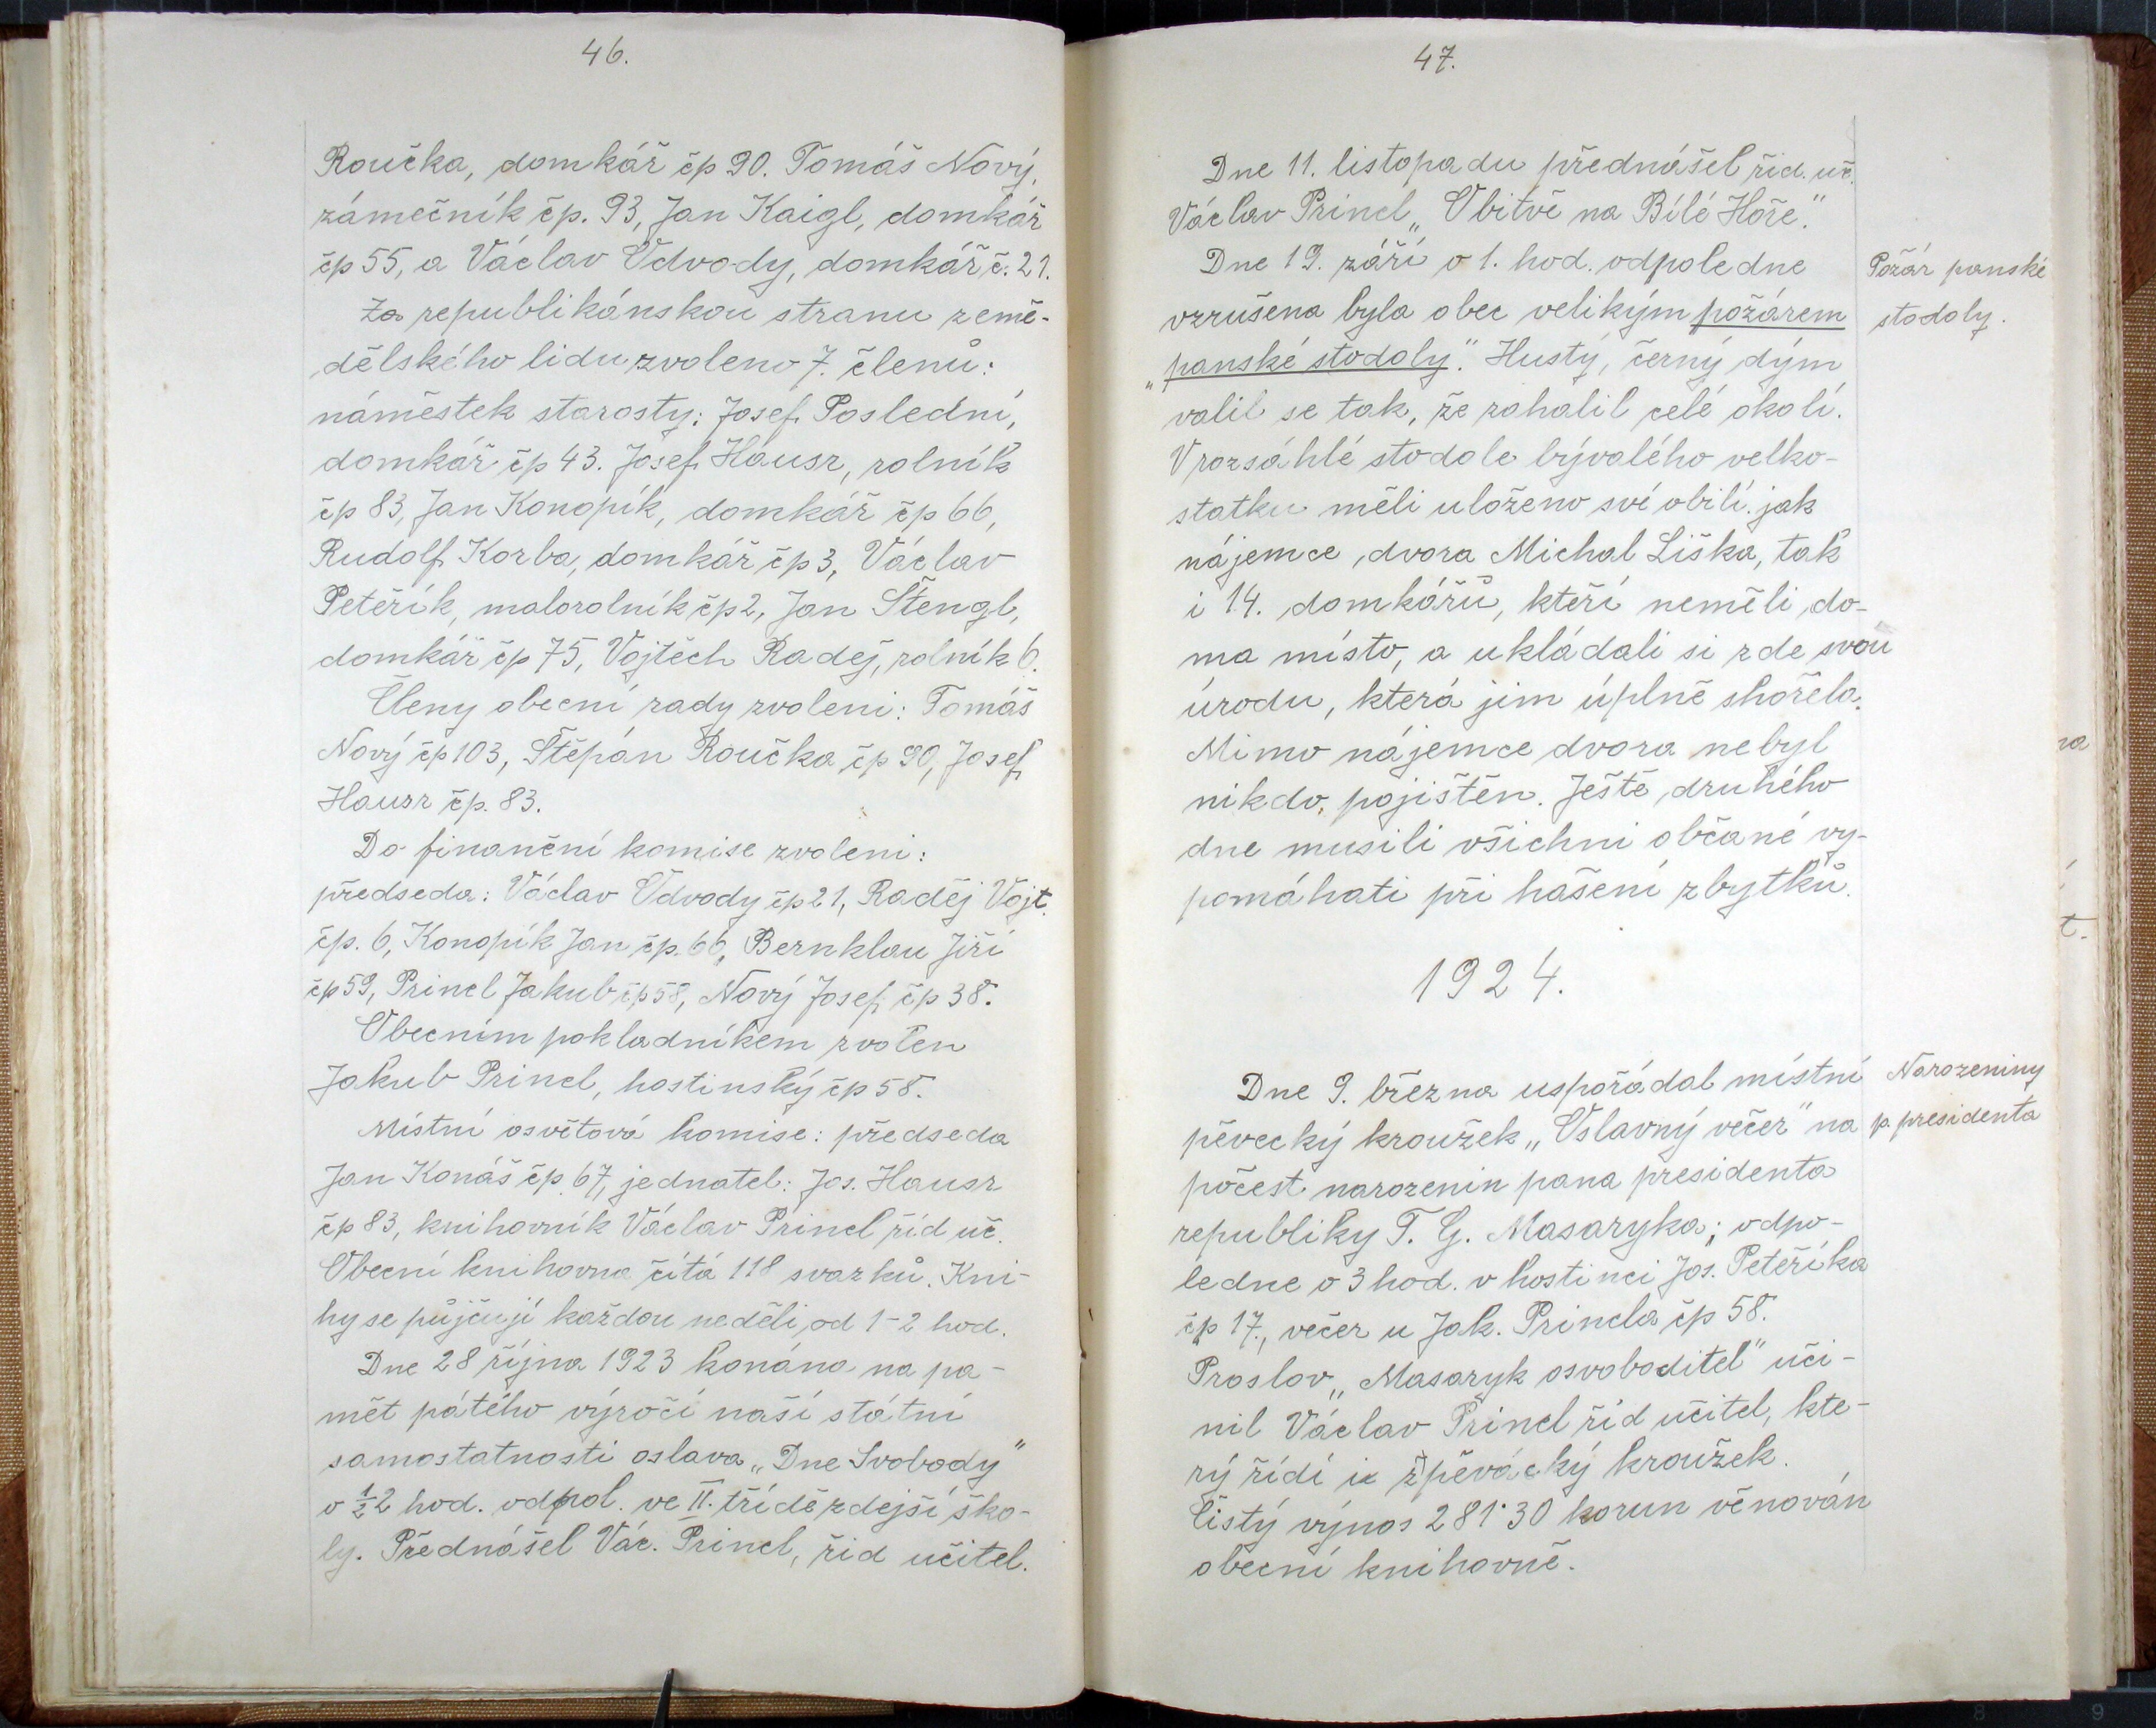 46.
Roučka, domkář čp 90. Tomáš Nový,
zámečník čp. 93, Jan Kaigl, domkář
čp 55, a Václav Odvody, domkář č. 21.
Za republikánskou stranu země-
dělského lidu zvoleno 7. členů:
náměstek starosty: Josef Poslední,
domkář čp 43. Josef Hausr, rolník
čp 83, Jan Konopík, domkář čp 66,
Rudolf Korba, domkář čp 3, Václav
Peteřík, malorolník čp 2, Jan Štengl,
domkář čp 75, Vojtěch Raděj, rolník 6.
Členy obecní rady zvoleni: Tomáš
Nový čp 103, Štěpán Roučka čp 90, Josef
Hausr čp. 83.
Do finanční komise zvoleni:
předseda: Václav Odvody čp 21, Raděj Vojt.
čp. 6, Konopík Jan čp. 66, Bernklau Jiří
čp 59, Princl Jakub čp 58, Nový Josef čp 38.
Obecním pokladníkem zvolen
Jakub Princl, hostinský čp 58.
Místní osvětová komise: předseda
Jan Konáš čp. 67, jednatel: Jos. Hausr
čp 83, knihovník Václav Princl říd uč.
Obecní knihovna čítá 118 svazků. Kni-
hy se půjčují každou neděli od 1-2 hod.
Dne 28 října 1923 konána na pa-
mět pátého výročí naší státní
samostatnosti oslava „Dne Svobody"
o ½2 hod. odpol. ve II. třídě zdejší ško-
ly. Přednášel Vác. Princl, říd učitel.
47.
Dne 11. listopadu přednášel říd. uč.
Václav Princl „O bitvě na Bílé Hoře."
Dne 19. září o 1. hod. odpoledne
vzrušena byla obec velikým požárem
„panské stodoly". Hustý, černý dým
valil se tak, že zahalil celé okolí.
V rozsáhlé stodole bývalého velko-
statku měli uloženo své obilí jak
nájemce dvora Michal Liška, tak
i 14. domkářů, kteří neměli do-
ma místo, a ukládali si zde svou
úrodu, která jim úplně shořela.
Mimo nájemce dvora nebyl
nikdo pojištěn. Ještě druhého
dne musili všichni občané vy-
pomáhati při hášení zbytků.
Požár panské
stodoly.
1924.
Dne 9. března uspořádal místní
pěvecký kroužek „Oslavný večer" na
počest narozenin pana presidenta
republiky T. G. Masaryka; odpo-
ledne o 3 hod. v hostinci Jos. Peteříka
čp 17., večer u Jak. Princla čp 58.
Proslov „Masaryk osvoboditel" uči-
nil Václav Princl říd učitel, kte-
rý řídí i zpěvácký kroužek.
Čistý výnos 281·30 korun věnován
obecní knihovně.
Narozeniny
p. presidenta
na
t.